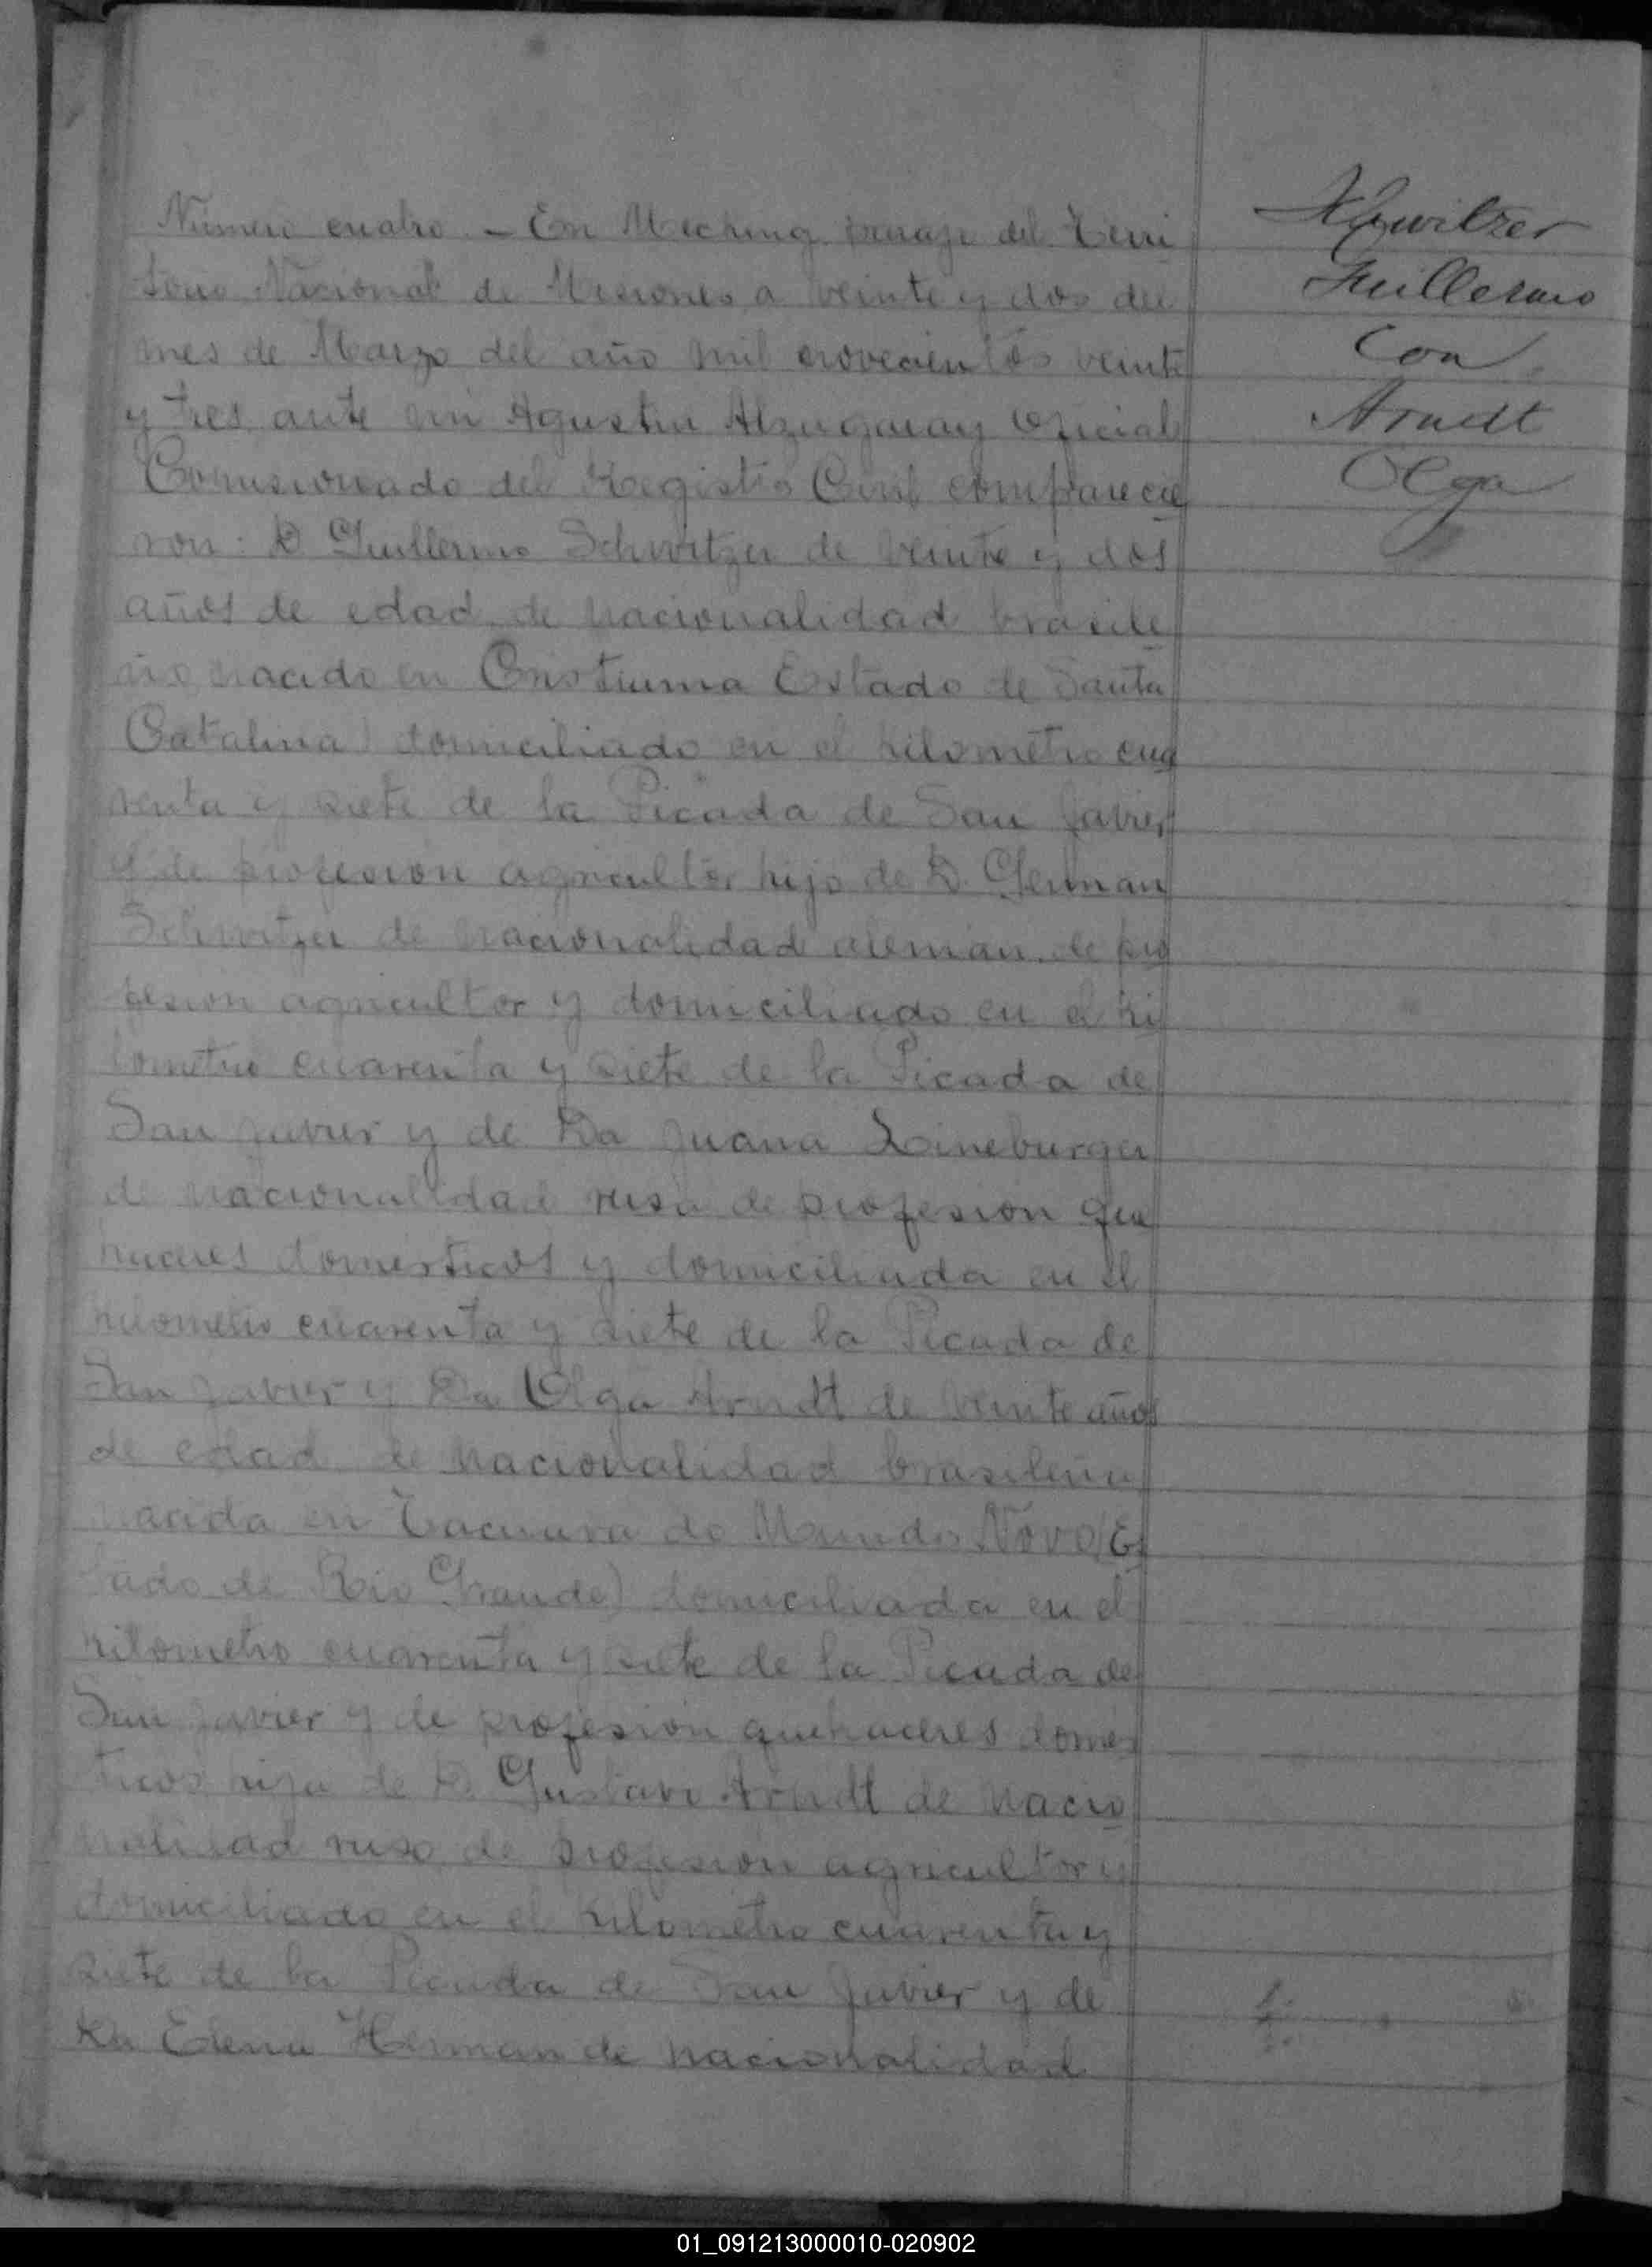 Número cuatro. - En Meching paraje del Terri
torio Nacional de Misiones a veinte y dos del
mes de Marzo del año mil novecientos veinte
y tres ante mi Agustin Alzugaray Oficial
Comisionado del Registro Civil comparecie
ron: D. Guillermo Schwitzer de veinte y dos
años de edad de nacionalidad brasile
ño nacido en Cristiuma Estado de Santa
Catalina) domiciliado en el kilometro cua
renta y siete de la Picada de San Javier
y de profesion agricultor hijo de D. German
Schwitzer de nacionalidad aleman de pro
fesion agricultor y domiciliado en el ki
lometro cuarenta y siete de la Picada de
San Javier y de Da Juana Lineburger
de nacionalidad rusa de profesion que
haceres domesticos y domiciliada en el
kilometro cuarenta y siete de la Picada de
San Javier y Da Olga Arndt de veinte años
de edad de nacionalidad brasileña
nacida en Tacuara do Mundo Novo (Es
tado de Rio Grande) domiciliada en el
kilometro cuarenta y siete de la Picada de
San Javier y de profesion quehaceres domes
ticos hija de D. Gustavo Arndt de nacio
nalidad ruso de profesion agricultor y
domiciliado en el kilometro cuarenta y
siete de la Picada de San Javier y de
Da Elena Herman de nacionalidad
Schwitzer
Guillermo
Con
Arndt
Olga
01_091213000010-020902